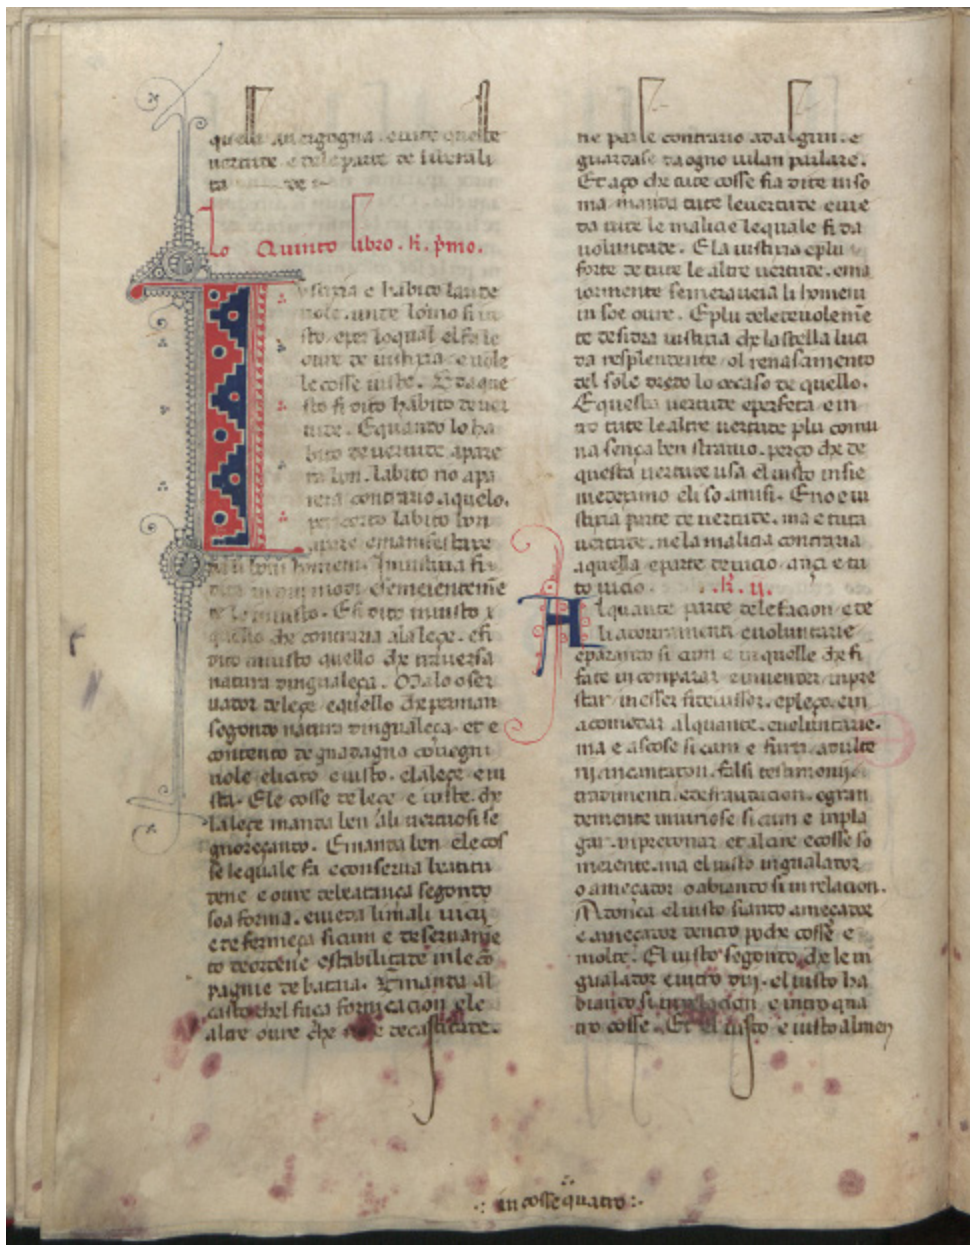 quella an ergogna. e uite queste
uertute e dele parte de liberali
ta de
Lo Quinto libro. k. pmo.
ustizia e habito laude
uole. unde lomo si iu
sto. e per loqual el fa le
oure de iustizia. e uole
le cosse iuste. E da que
sto si dito habito de uer
tute. E quanto lo ha
bito de uertute apare
ra bon. labito no apa
rera contrario aquelo.
labito bon
apare e manifesta
boni homeni. Iniusticia si
dita in modi
de lo iniusto. E si dito iniusto
quello che contraria ala leçe. e si
dito iniusto quello che trauersa
natura dingualeça. Ma lo oser
uator de leçe e quello che perman
segonto natura dingualeça. et e
contento de guadagno couegni
uole e licito e iusto. el a leçe e iu
sta. E le cosse de leçe e iuste. che
la leçe manda ben ali uertuosi se
gnoreçando. E manda ben ele cos
se le quale fa e conserua beatitu
dene e oure de beatança segonto
soa forma. e uieda li mali uicij
e de fermeça si cum e de seruame
to de ordene e stabilitate in le co
pagnie de bataia. E manda al
casto chel fuça fornicacion e le
altre oure che de castitate.
ne parle contrario ad alguni. e
guardase da ogno uilan parlare.
Et aço che tute cosse sia dite in so
ma manda tute le uertute e uie
da tute le malicie le quale si da
uoluntade. E la iusticia e plu
forte de tute le altre uertute. e ma
iormente se meraueia li homeni
in soe oure. E plu deleteuolemete
te desidra iusticia che la stella luci
da resplendente ol renasamento
del sole dreto lo ocaso de quello.
E questa uertute e perfeta e in
tro tute le altre uertute plu comu
na sença ben stratio. perço che de
questa uertute usa el iusto in sie
medesimo e li so amisi. E no e iu
stizia parte de uertute. ma e tuta
uertute. ne la malicia contraria
a quella e parte de uicio. ançi e tu
to uicio. .k. ij.
Alquante parte dele facion e de
li adouramenti e uoluntarie
e paranto si cum e in quelle che si
fate in conparar e in uender. in pre
star. in esser fideiussor. e pleço. e in
acomodar alquante. e uoluntarie.
ma e ascose si cum e furti. adulte
rij. incantaton. falsi testimonij.
tradimenti. e defraudacion. o gran
demente iniuriose si cum e in pla
gar. in presonar et al cire e cosse so
merente. ma el iusto in gualator
o ameçator o abianto si in relacion.
Adonca el iusto sianto ameçator
e ameçator dentro poche cosse e
molte. El iusto segonto che le in
gualator e intro duj. el iusto ha
bianto si in relacion e intro qua
tro cosse. Et el iusto e iusto almen
in cosse quatro